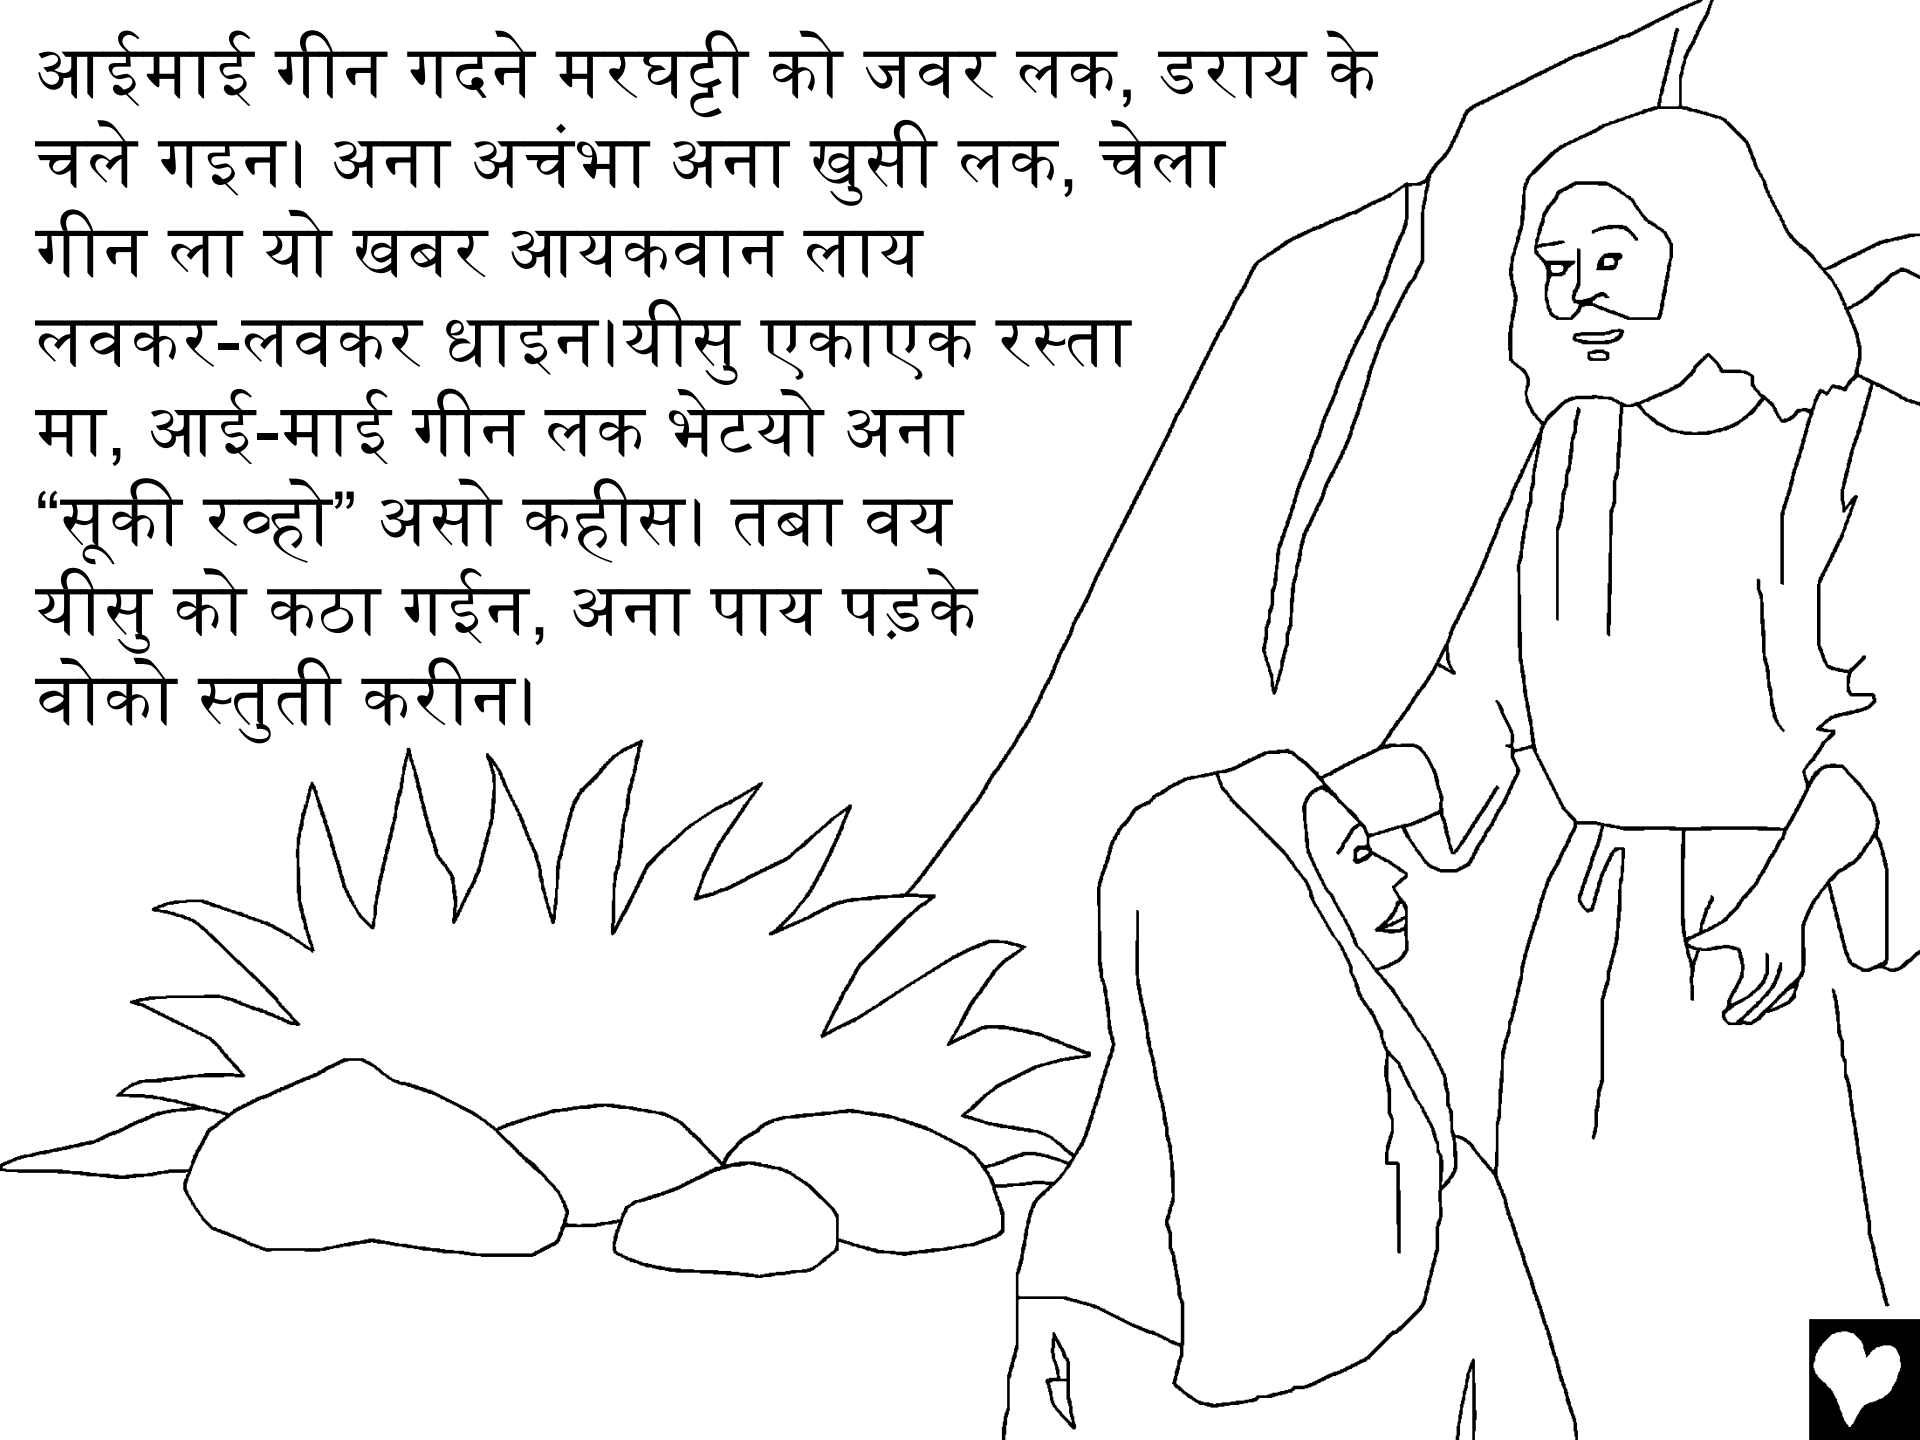 आईमाई गीन गदने मरघट्टी को जवर लक, डराय के
चले गइन। अना अचंभा अना खुसी लक, चेला
गीन ला यो खबर आयकवान लाय
लवकर-लवकर धाइन।यीसु एकाएक रस्ता
मा, आई-माई गीन लक भेटयो अना
“सूकी रव्हो” असो कहीस। तबा वय
यीसु को कठा गईन, अना पाय पड़के
वोको स्तुती करीन।